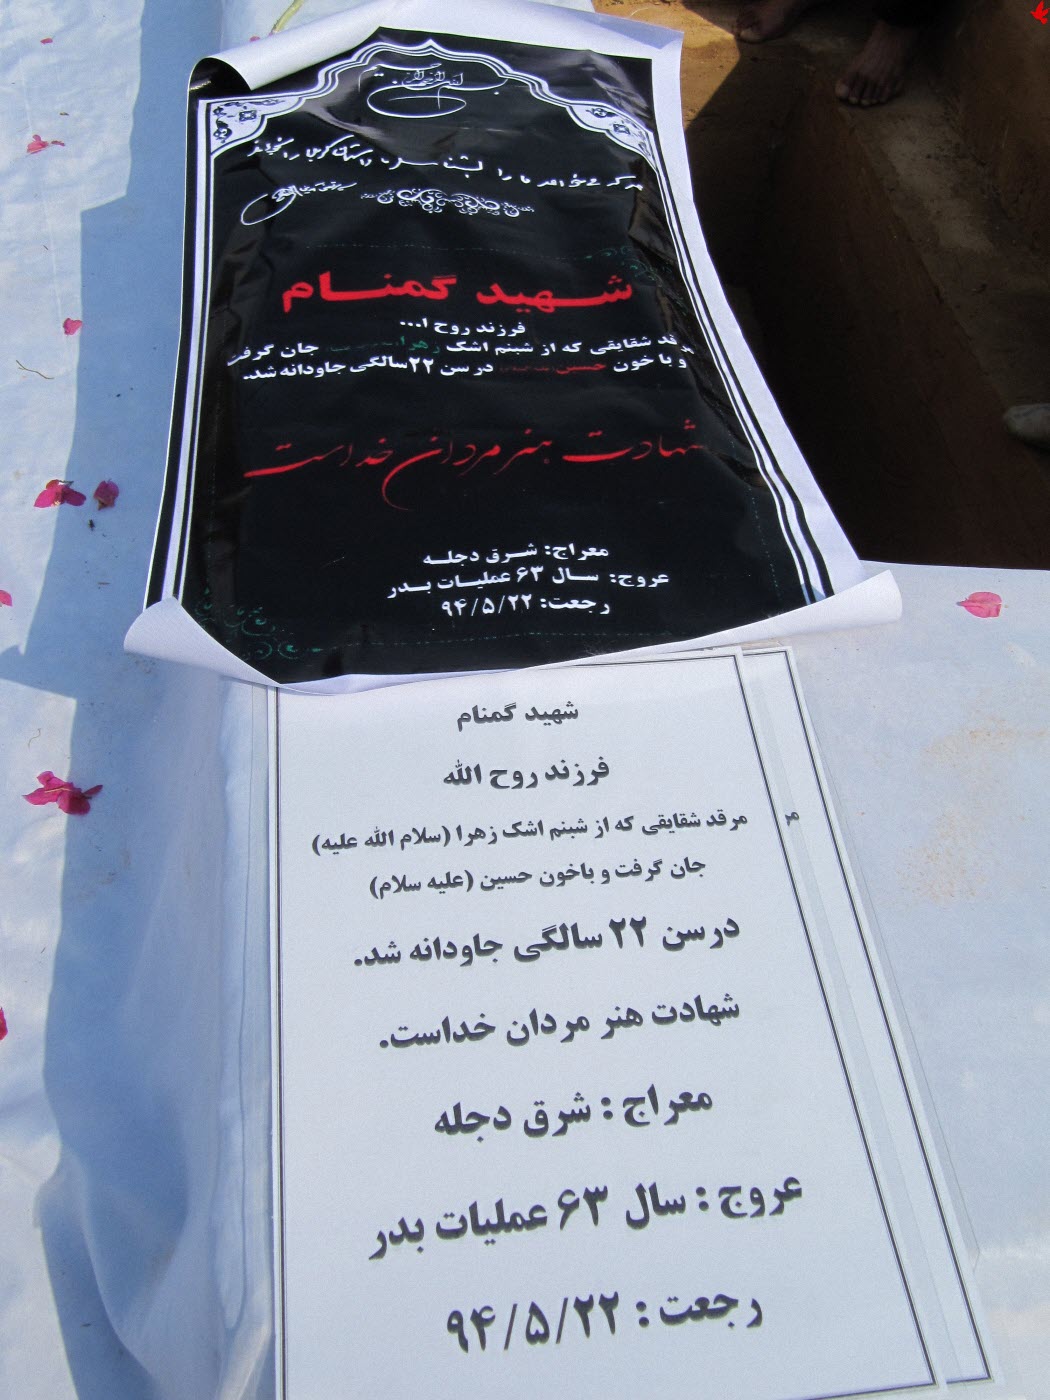 بسم الله الرحمن الرحیم
هر که می خواهد ما را بشناسد داستان کربلا را بخواند
شهید گمنام
فرزند روح ا...
مرقد شقایقی که از شبنم اشک زهرا جان گرفت
و با خون حسین در سن ۲۲سالگی جاودانه شد.
شهادت هنر مردان خداست
معراج: شرق دجله
عروج: سال ۶۳ عملیات بدر
رجعت: ۹۴/۵/۲۲
شهید گمنام
فرزند روح الله
مرقد شقایقی که از شبنم اشک زهرا (سلام الله علیه)
جان گرفت و باخون حسین (علیه سلام)
درسن ۲۲ سالگی جاودانه شد.
شهادت هنر مردان خداست.
معراج : شرق دجله
عروج : سال ۶۳ عملیات بدر
رجعت : ۹۴/۵/۲۲
مر